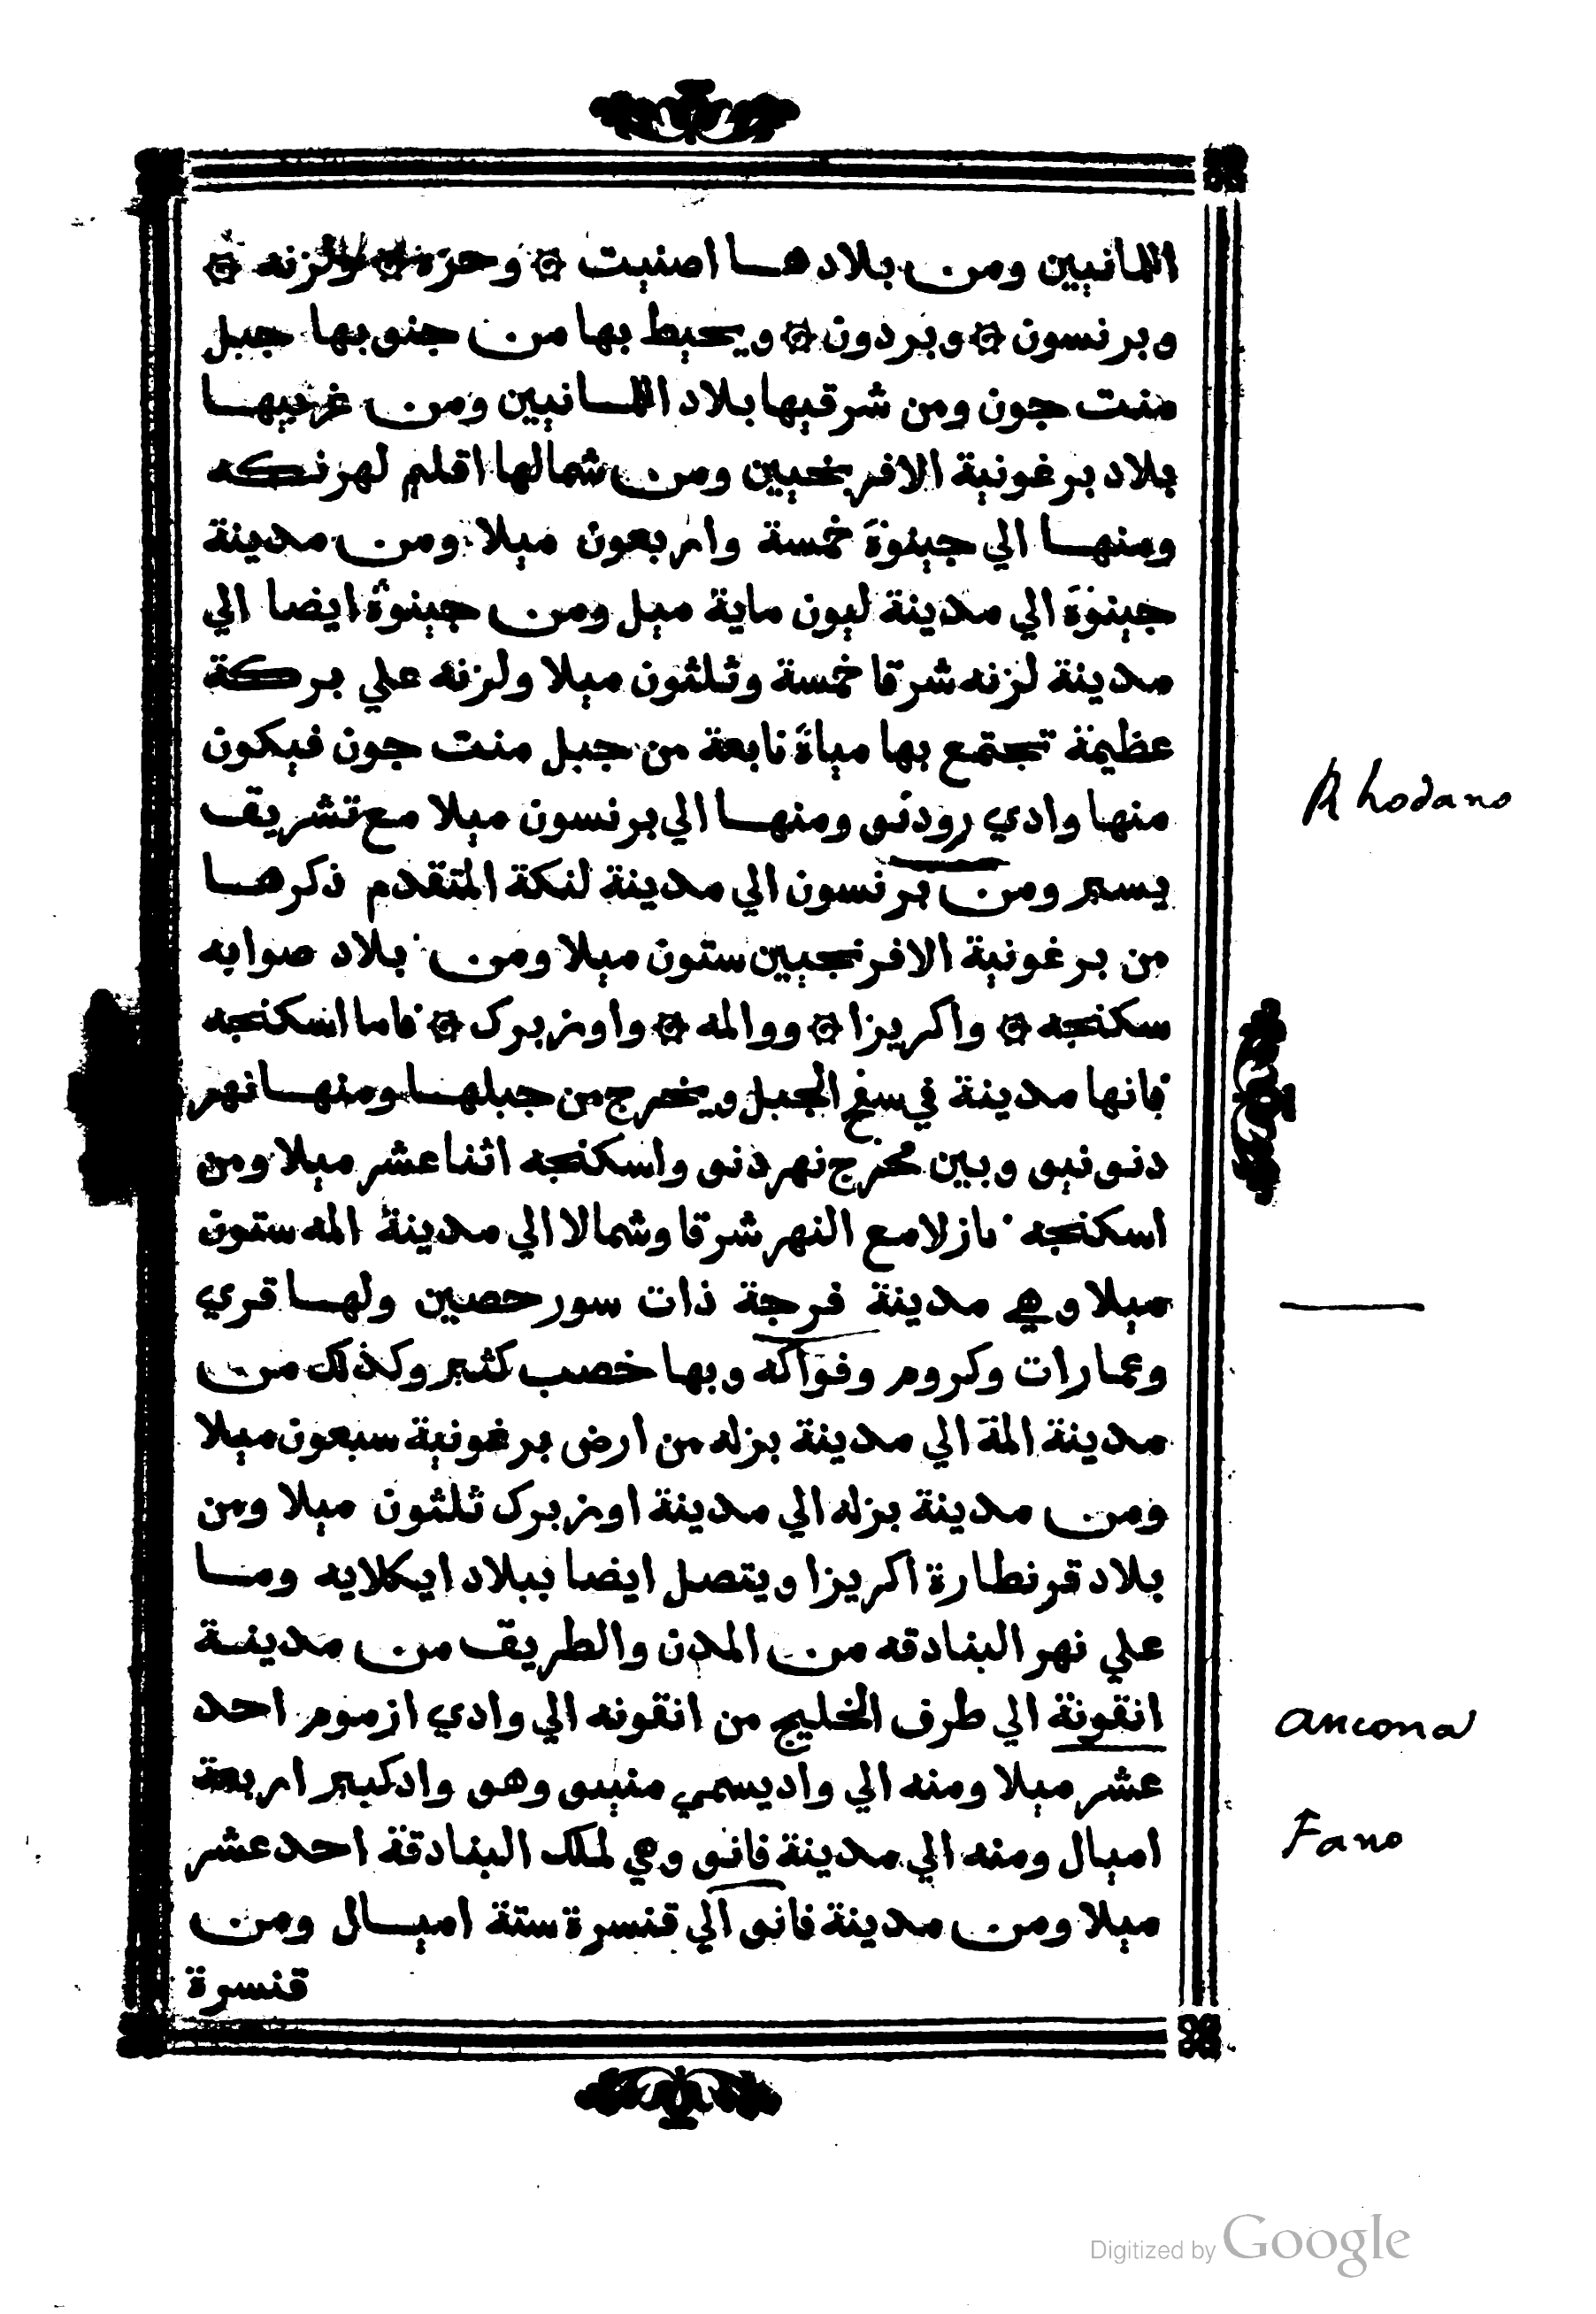 اللمانيين ومن بلادها اصنيت ۞ وحزه ۞ ولزنه ۞
وبرنسون ۞ وبردون ۞ ويحيط بها من جنوبها جبل
منت جون ومن شرقيها بلاد اللمانيين ومن غربيها
بلاد برغونية الافرنجيين ومن شمالها اقليم لهرنكه
ومنها الي جينوة خمسة واربعون ميلا ومن مدينة
جينوة الي مدينة ليون ماية ميل ومن جينوة ايضا الي
مدينة لزنه شرقا خمسة وثلثون ميلا ولزنه علي بركة
عظيمة تجتمع بها مياة نابعة من جبل منت جون فيكون
منها وادي رودنو ومنها الي برنسون ميلا مع تشريق
Rhodano
يسير ومن برنسون الي مدينة لنكة المتقدم ذكرها
من برغونية الافرنجيين ستون ميلا ومن بلاد صوابه
سكنجه ۞ واكريزا ۞ ووالمه ۞ واوزبرك ۞ فاما اسكنجه
فانها مدينة في سفح الجبل ويخرج من جبلها ومنها نهر
دنو نيو وبين مخرج نهر دنو واسكنجه اثنا عشر ميلا ومن
اسكنجه نازلا مع النهر شرقا وشمالا الي مدينة المه ستون
ميلا وهي مدينة فرجة ذات سور حصين ولها قري
وعمارات وكروم وفواكه وبها خصب كثير وكذلك من
مدينة المة الي مدينة بزله من ارض برغونية سبعون ميلا
ومن مدينة بزله الي مدينة اوزبرك ثلثون ميلا ومن
بلاد قرنطارة اكريزا ويتصل ايضا ببلاد ايكلايه وما
علي نهر البنادقه من المدن والطريق من مدينة
انقونة الي طرف الخليج من انقونه الي وادي ازموم احد
Ancona
عشر ميلا ومنه الي واد يسمي منيبو وهو واد كبير اربعة
اميال ومنه الي مدينة فانو وهي لملك البنادقة احد عشر
Fano
ميلا ومن مدينة فانو الي قنسرة ستة اميال ومن
قنسرة
Digitized by Google